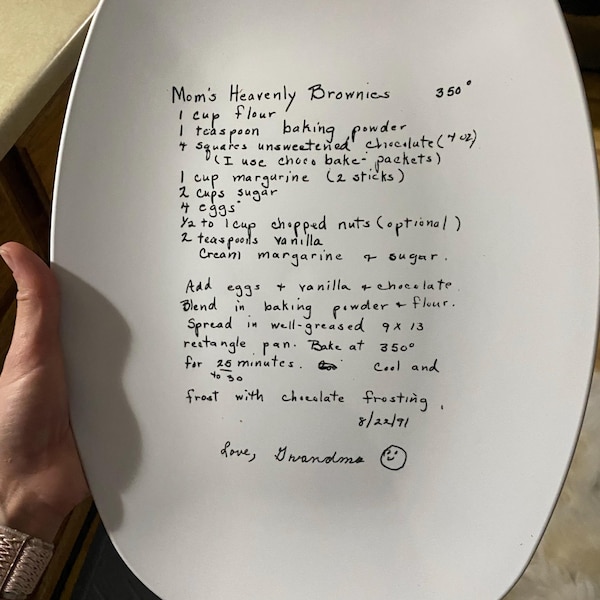 Mom's Heavenly Brownies 350°
1 cup flour
1 teaspoon baking powder
4 squares unsweetened chocolate (4 oz)
(I use choco bake packets)
1 cup margurine (2 sticks)
2 cups sugar
4 eggs
1/2 to 1 cup chopped nuts (optional)
2 teaspoons vanilla
Cream margarine + sugar.
Add eggs + vanilla + chocolate.
Blend in baking powder + flour.
Spread in well-greased 9 x 13
rectangle pan. Bake at 350°
for 25 minutes. Cool and
to 30
frost with chocolate frosting.
8/22/91
Love, Grandma